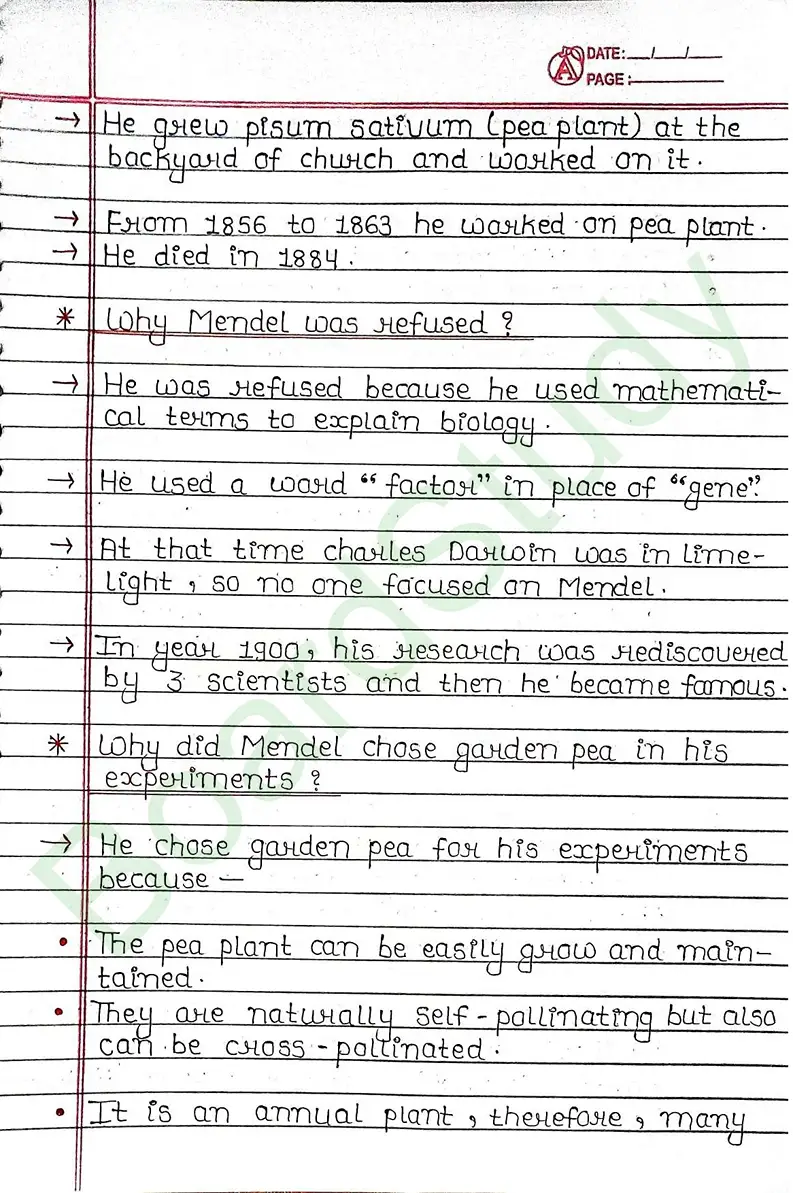 DATE: __/__/__
PAGE: ______
→ He grew pisum sativum (pea plant) at the
backyard of church and worked on it.
→ From 1856 to 1863 he worked on pea plant.
→ He died in 1884.
* Why Mendel was refused ?
→ He was refused because he used mathemati-
cal terms to explain biology.
→ He used a word “factor” in place of “gene”.
→ At that time charles Darwin was in lime-
light, so no one focused on Mendel.
→ In year 1900, his research was rediscovered
by 3 scientists and then he became famous.
* Why did Mendel chose garden pea in his
experiments ?
→ He chose garden pea for his experiments
because —
• The pea plant can be easily grow and main-
tained.
• They are naturally self-pollinating but also
can be cross-pollinated.
• It is an annual plant, therefore, many
BoardStudy